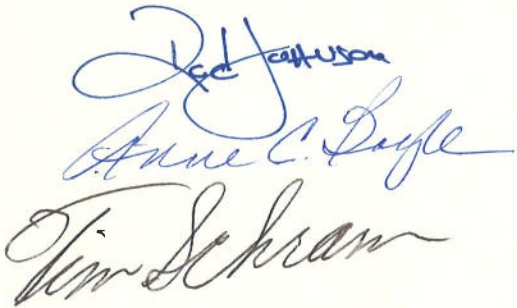 Rod Johnson
Anne C. Boyle
Tim Schram